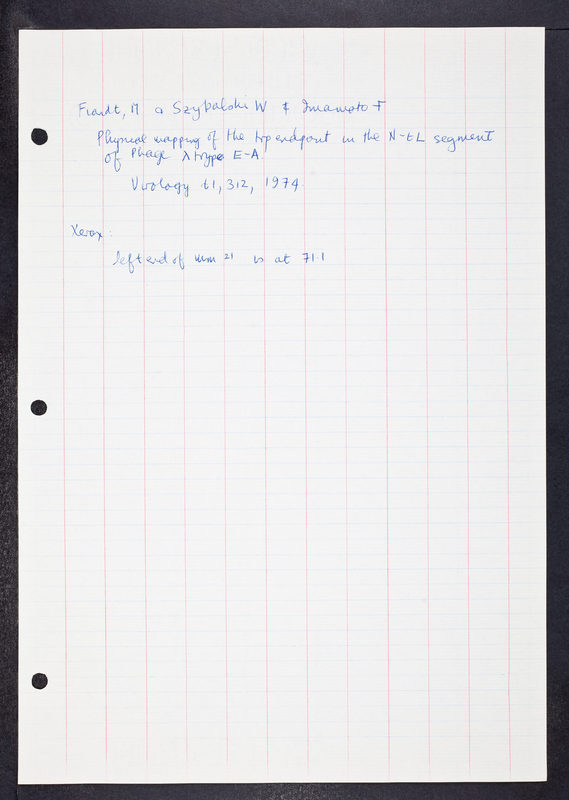 Fiandt, M & Szybalski W & Imamoto F
Physical mapping of the trp endpoint in the N-tL segment
of Phage λ E-A.
Virology 61, 312, 1974.
Xerox:
left end of imm 21 is at 71.1